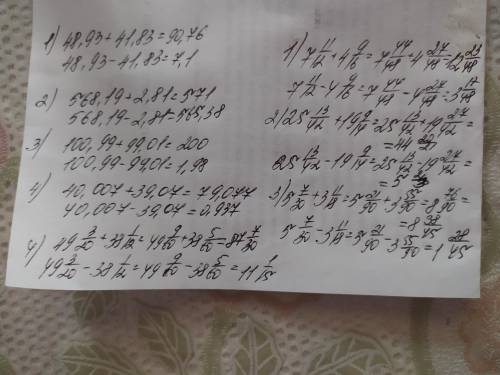 1) 48,93+41,83=90,76
48,93-41,83=7,1
2) 568,19+2,81=571
568,19-2,81=565,38
3) 100,99+99,01=200
100,99-99,01=1,98
4) 40,007+39,07=79,077
40,007-39,07=0,937
4) 49 3/20 + 38 1/12 = 49 9/60 + 38 5/60 = 87 7/30
49 3/20 - 38 1/12 = 49 9/60 - 38 5/60 = 11 1/15
1) 7 11/12 + 4 9/16 = 7 44/48 + 4 27/48 = 12 23/48
7 11/12 - 4 9/16 = 7 44/48 - 4 27/48 = 3 17/48
2) 25 13/42 + 19 9/14 = 25 13/42 + 19 27/42 =
= 44
25 13/42 - 19 9/14 = 25 13/42 - 19 27/42 =
= 5
3) 5 7/30 + 3 11/18 = 5 21/90 + 3 55/90 = 8 76/90 =
= 8 38/45
5 7/30 - 3 11/18 = 5 21/90 - 3 55/90 = 1 28/45